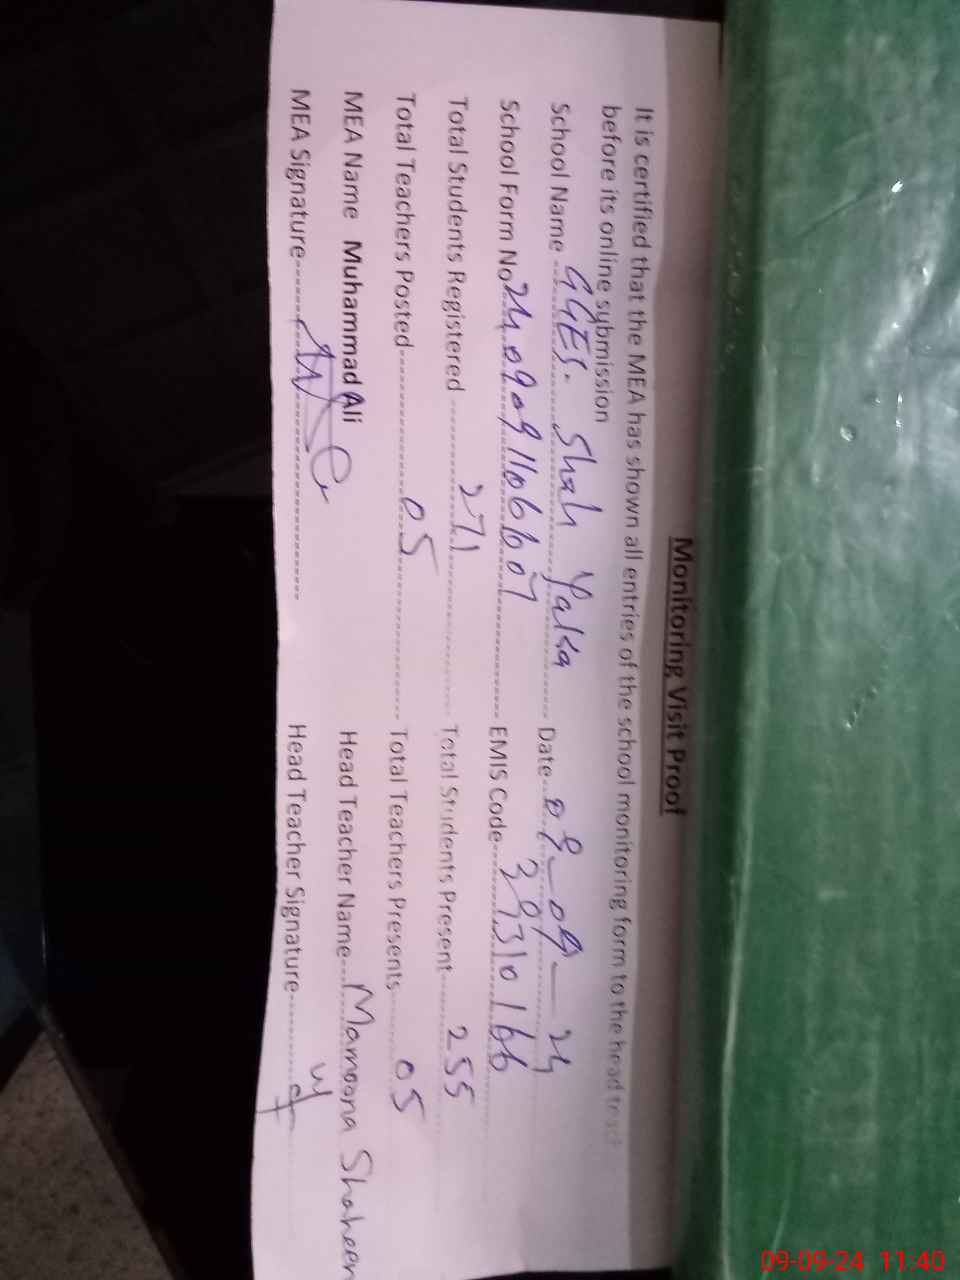 Monitoring Visit Proof
It is certified that the MEA has shown all entries of the school monitoring form to the head
before its online submission
School Name GGES. Shah Yakka Date 09-09-24
School Form No 2409091106607 EMIS Code 37310166
Total Students Registered 271 Total Students Present 255
Total Teachers Posted 05 Total Teachers Presents 05
MEA Name Muhammad Ali Head Teacher Name Mamoona Shaheen
MEA Signature Head Teacher Signature
09-09-24 11:40